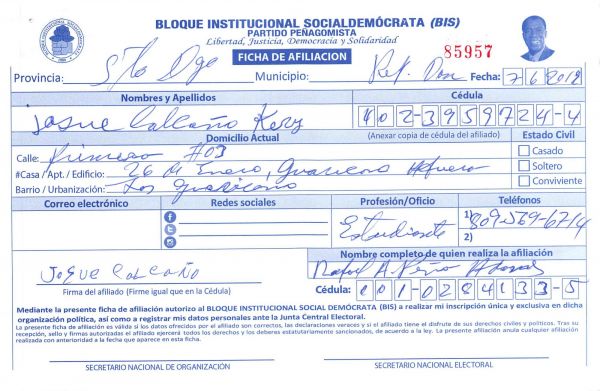 BLOQUE INSTITUCIONAL SOCIALDEMÓCRATA (BIS)
PARTIDO PEÑAGOMISTA
Libertad, Justicia, Democracia y Solidaridad
FICHA DE AFILIACION
85957
Provincia: Sto Dgo Municipio: Rep. Dom Fecha: 7/6/2012
Nombres y Apellidos
Cédula
Josue Calcaño Kery
402-3959724-4
Domicilio Actual
(Anexar copia de cédula del afiliado)
Estado Civil
Calle: Primera #03
Casado
#Casa / Apt. / Edificio: 26 de Enero,
Soltero
Barrio / Urbanización: Los
Conviviente
Correo electrónico
Redes sociales
Profesión/Oficio
Teléfonos
Estudiante
1) 809-569-6714
2)
Nombre completo de quien realiza la afiliación
Rafael A. Peña
Josue Calcaño
Firma del afiliado (Firme igual que en la Cédula)
Cédula: 001-0284133-5
Mediante la presente ficha de afiliación autorizo al BLOQUE INSTITUCIONAL SOCIAL DEMÓCRATA (BIS) a realizar mi inscripción única y exclusiva en dicha
organización política, así como a registrar mis datos personales ante la Junta Central Electoral.
La presente ficha de afiliación es válida si los datos ofrecidos por el afiliado son correctos, las declaraciones veraces y si el afiliado tiene el disfrute de sus derechos civiles y políticos. Tras su
recepción, sello y firmas autorizadas el afiliado ejercerá todos los derechos y los deberes estatutariamente sancionados, de acuerdo a la ley. La presente afiliación anula cualquier afiliación
realizada con anterioridad a la fecha que aparece en esta ficha.
SECRETARIO NACIONAL DE ORGANIZACIÓN
SECRETARIO NACIONAL ELECTORAL